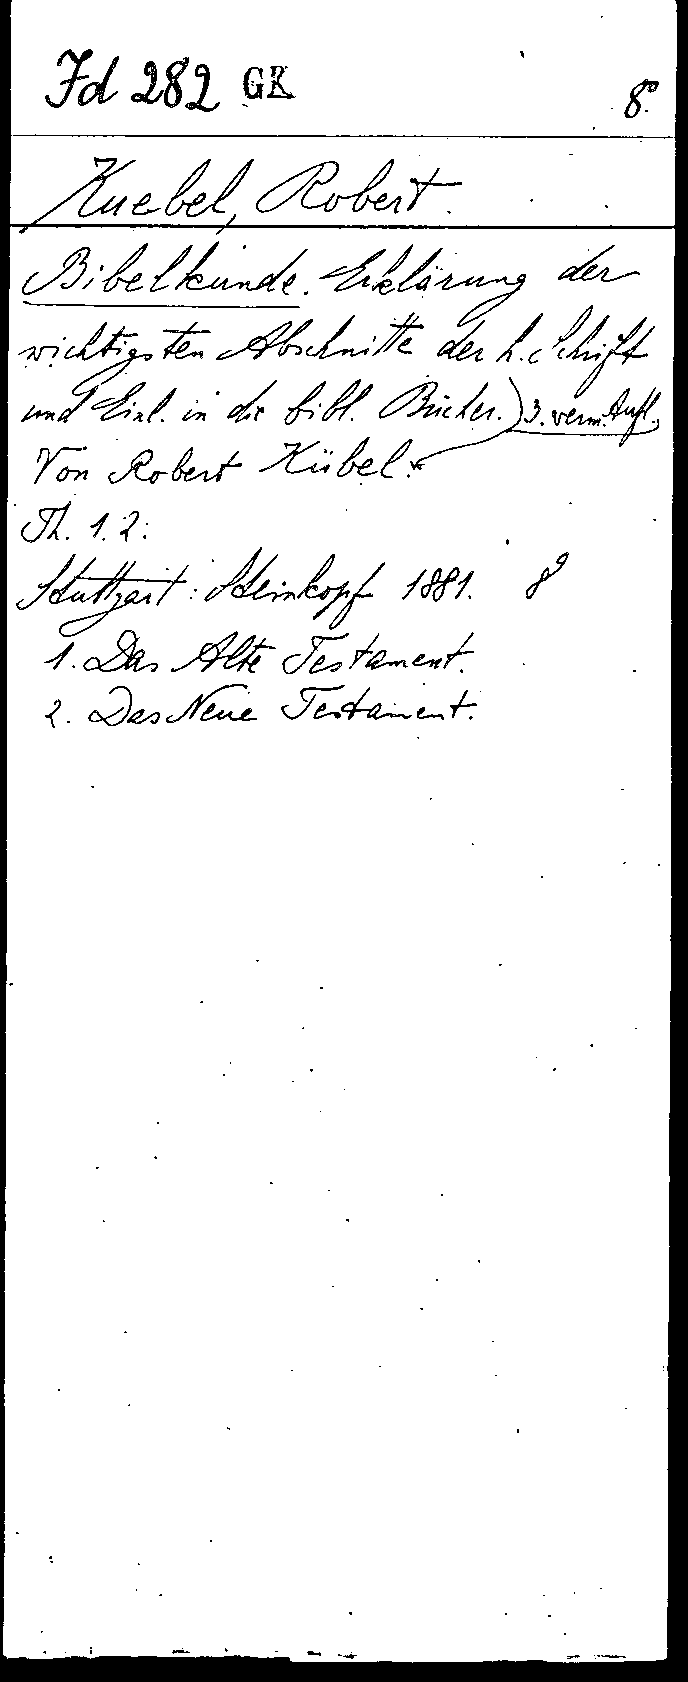 Jd 282 GK 8°
Kuebel, Robert.
Bibelkunde. Erklärung der
wichtigsten Abschnitte der h. Schrift
und Einl. in die bibl. Bücher.) 3. verm. Aufl.
Von Robert Kübel.
Th. 1.2:
Stuttgart: Steinkopf 1881. 8°
1. Das Alte Testament.
2. Das Neue Testament.